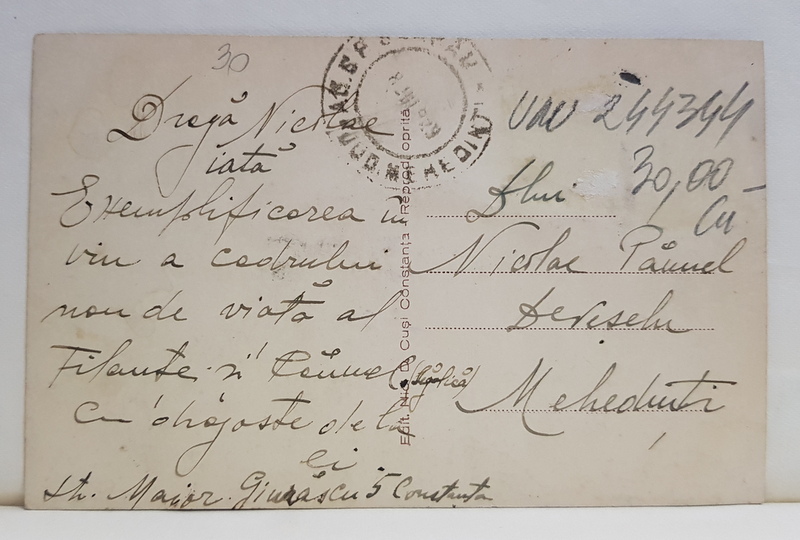 30
Dragă Nicolae
iată
Exemplificarea în
viu a cadrului
nou de viață al
Filantei și
Cu dragoste de la
ei
str. Maior Giurăscu 5 Constanța
Edit. Nic. D. Cuși Constanța Reprod. oprită
MEDINȚI
244344
30,00
Dlui
Nicolae Păunel
Deveselu
Mehedinți